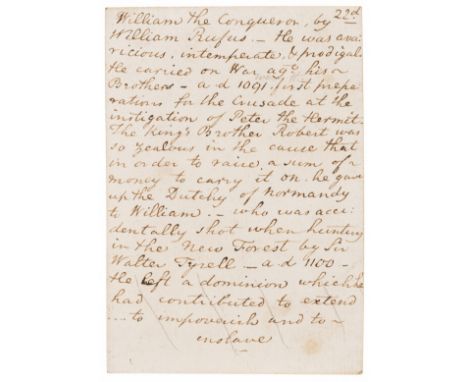 22d
William the Conqueror, by
William Rufus. – He was ava
ricious, intemperate, & prodigal
He carried on War agst. his
Brothers – a d 1091. first prepa
rations for the Crusade at the
instigation of Peter the Hermit.
The King's Brother Robert was
so zealous in the cause that
in order to raise a sum of
money to carry it on he gave
up the Dutchy of Normandy
to William. – who was acci
dentally shot when hunting
in the New Forest by Sir
Walter Tyrell – a d 1100 –
He left a dominion which he
had contributed to extend
... to impoverish and to –
enslave